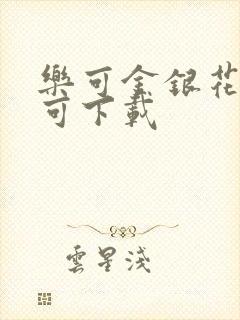 樂可金銀花
可下載
雲星淺